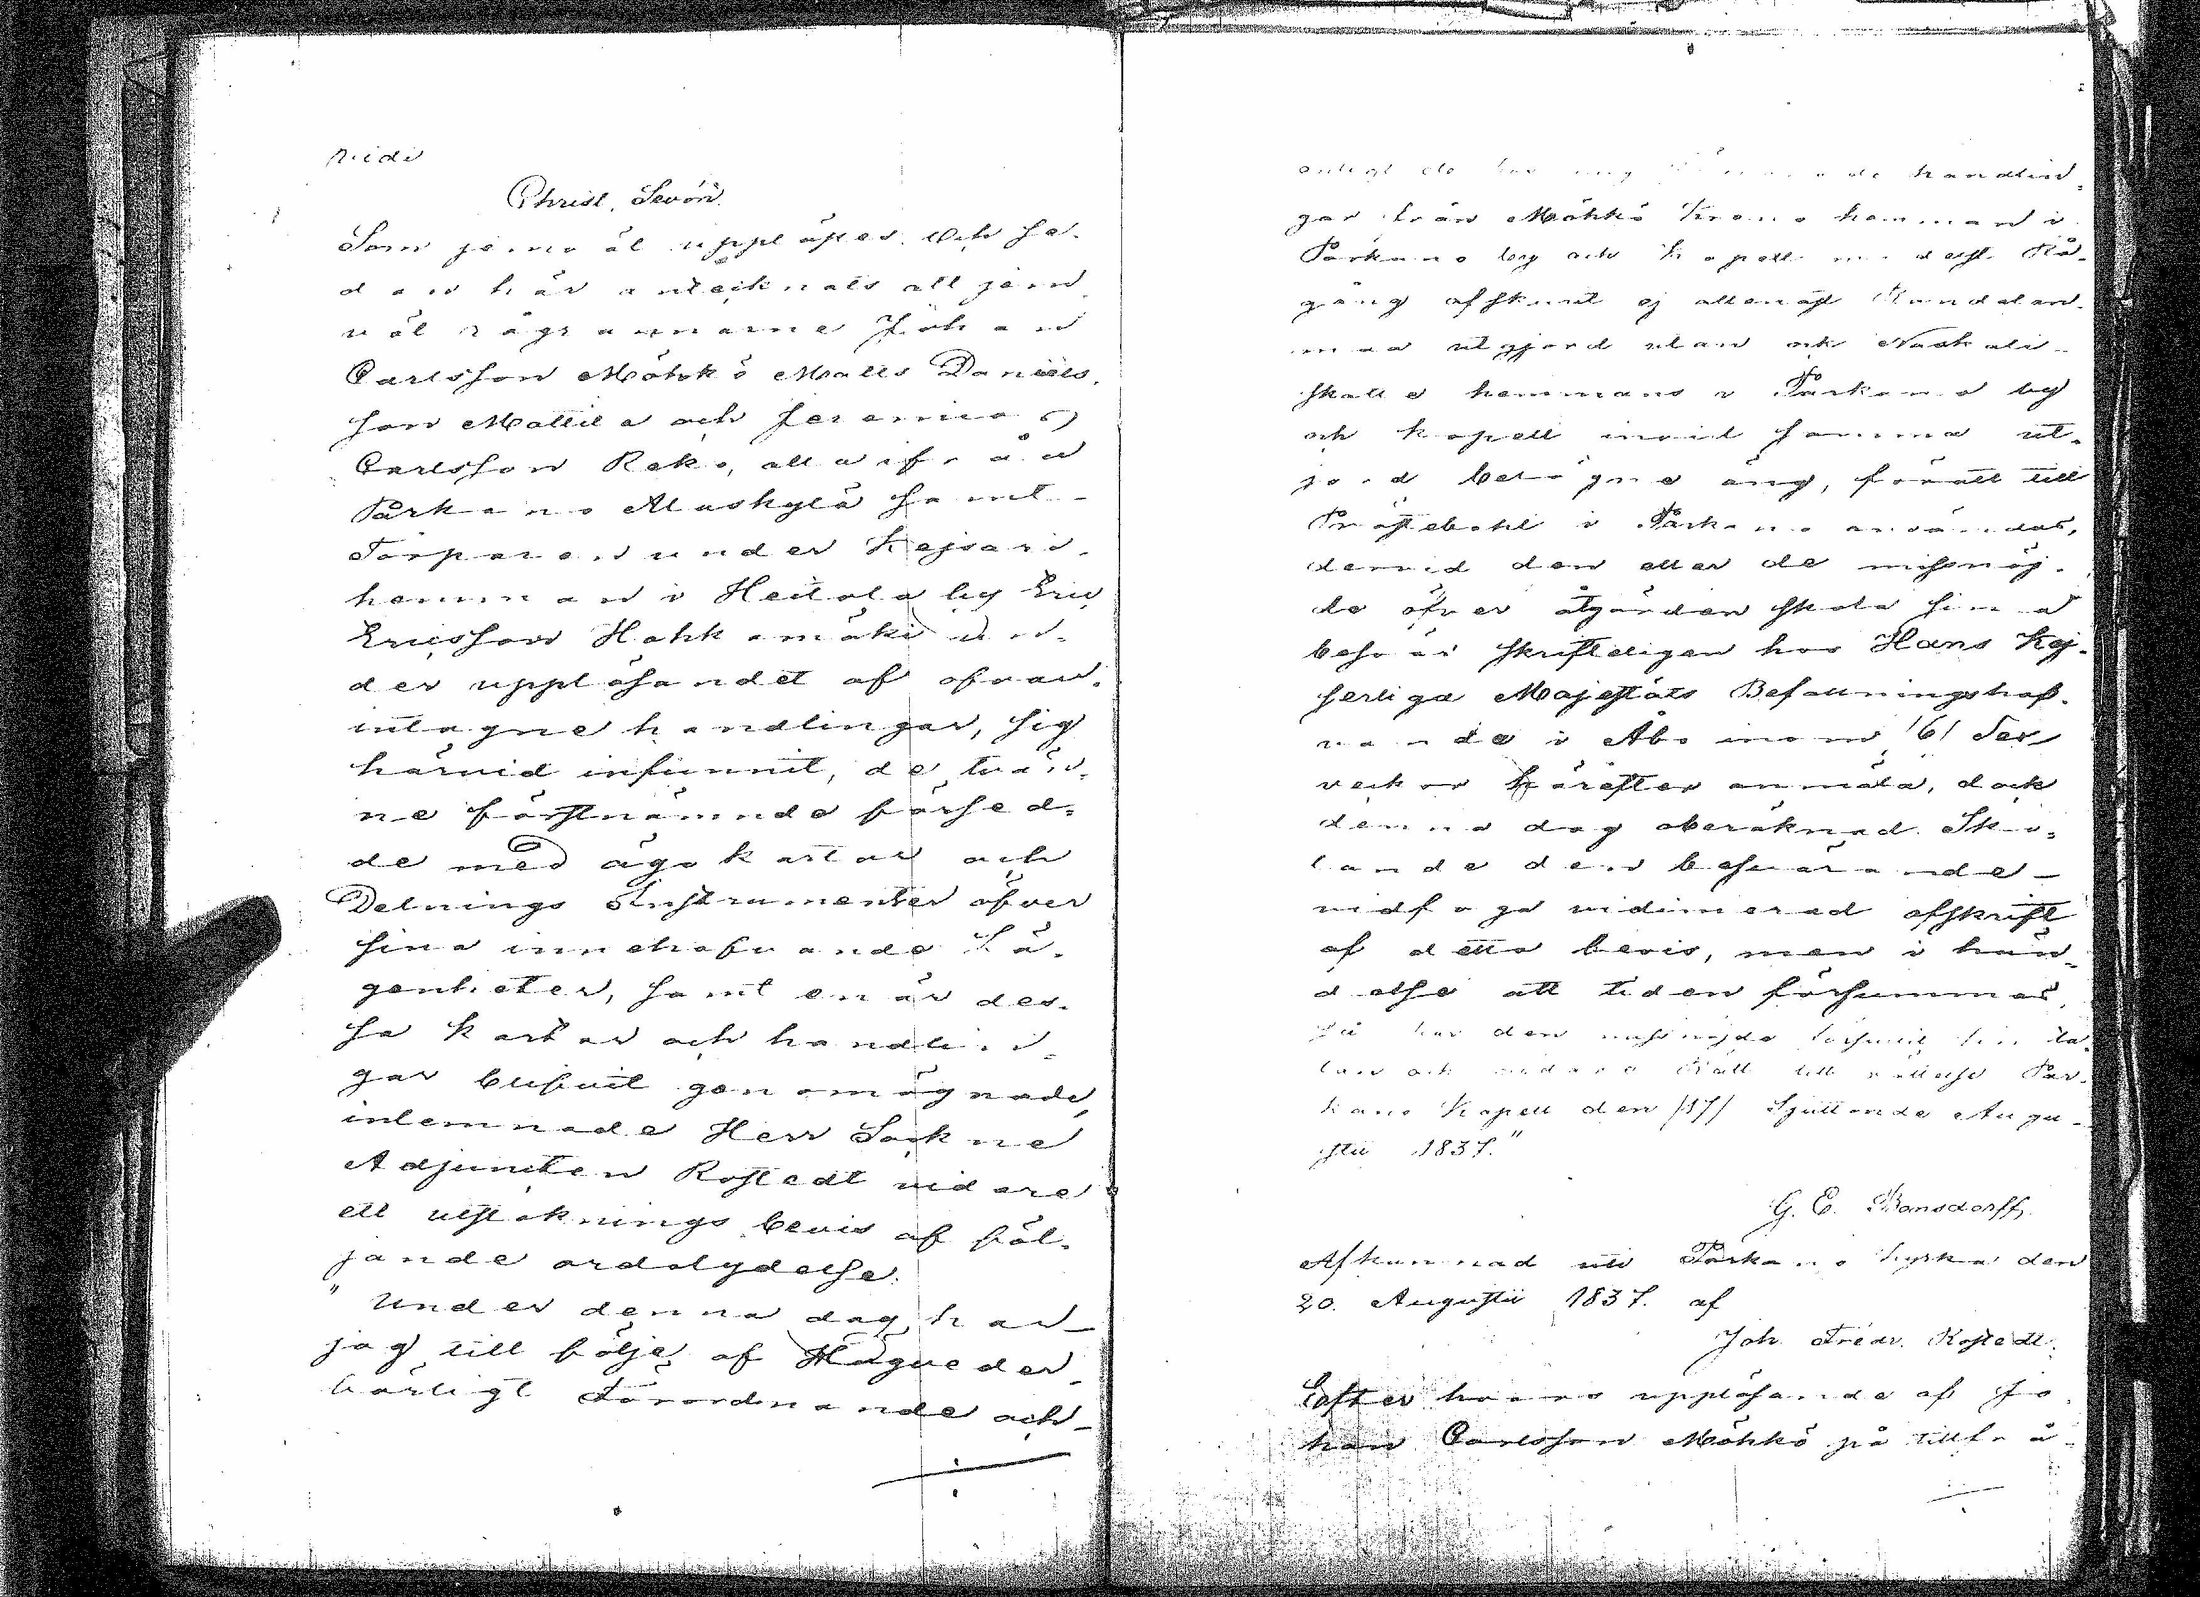 nidi
Christ. Sevón.
Som jemväl upplästes. Och se-
dan här antecknats att jem-
väl rågrannarne Johan
Carlsson Möhkö Matts Daniels-
son Mattila och Jeremias
Carlsson Reko, alla ifrån
Parkano Alaskylä samt
Torparen under Kejsari
hemman i Heitola by Eric
Ericsson Hahkamäki un-
der uppläsandet af ofvan-
intagne handlingar, sig
härvid infunnit, de trän-
ne förstnämnde försed-
de med ägokartor och
Delnings Instrumenter öfver
sina innehafvande Lä-
genheter, samt enär des-
sa kartor och handlin-
gar blifvit genomögnade,
inlemnade Herr Sockne
Adjuncten Rostedt vidare
ett utstaknings bevis af föl-
jande ordalydelse.
"Under denna dag har
jag till följe af Högveder-
börligt Förordnande och
enligt de hos mig handlin-
gar från Möhkö Krono hemman i
Parkano by och Kapell medelst Rå-
gång afskurit ej allenast
utgjord utan ock
skatte hemmans i Parkano by
och kapell invid samma ut-
jord belägne äng, för att till
Prästebohl i Parkano användas,
dervid den eller de missnöj-
de öfver åtgärden skola sina
besvär skrifteligen hos Hans Kej-
serliga Majestäts Befallningshaf-
vande i Åbo inom /6/ Sex
veckor härefter anmäla, dock
denna dag oberäknad. Sko-
lande den besvärande
vidfoga vidimerad afskrift
af detta bevis, men i hän-
delse att tiden försummas,
så har den missnöjde förlorat sin ta-
lan och vidare Rätt till rättelse Par-
kano Kapell den /17/ Sjuttonde Augu-
stii 1837."
G. E. Bonsdorff.
Afkunnad uti Parkano kyrka den
20. Augustii 1837. af
Joh. Fredr. Rostedt.
Efter hvars uppläsande af Jo-
han Carlsson Möhkö på tillfrå-